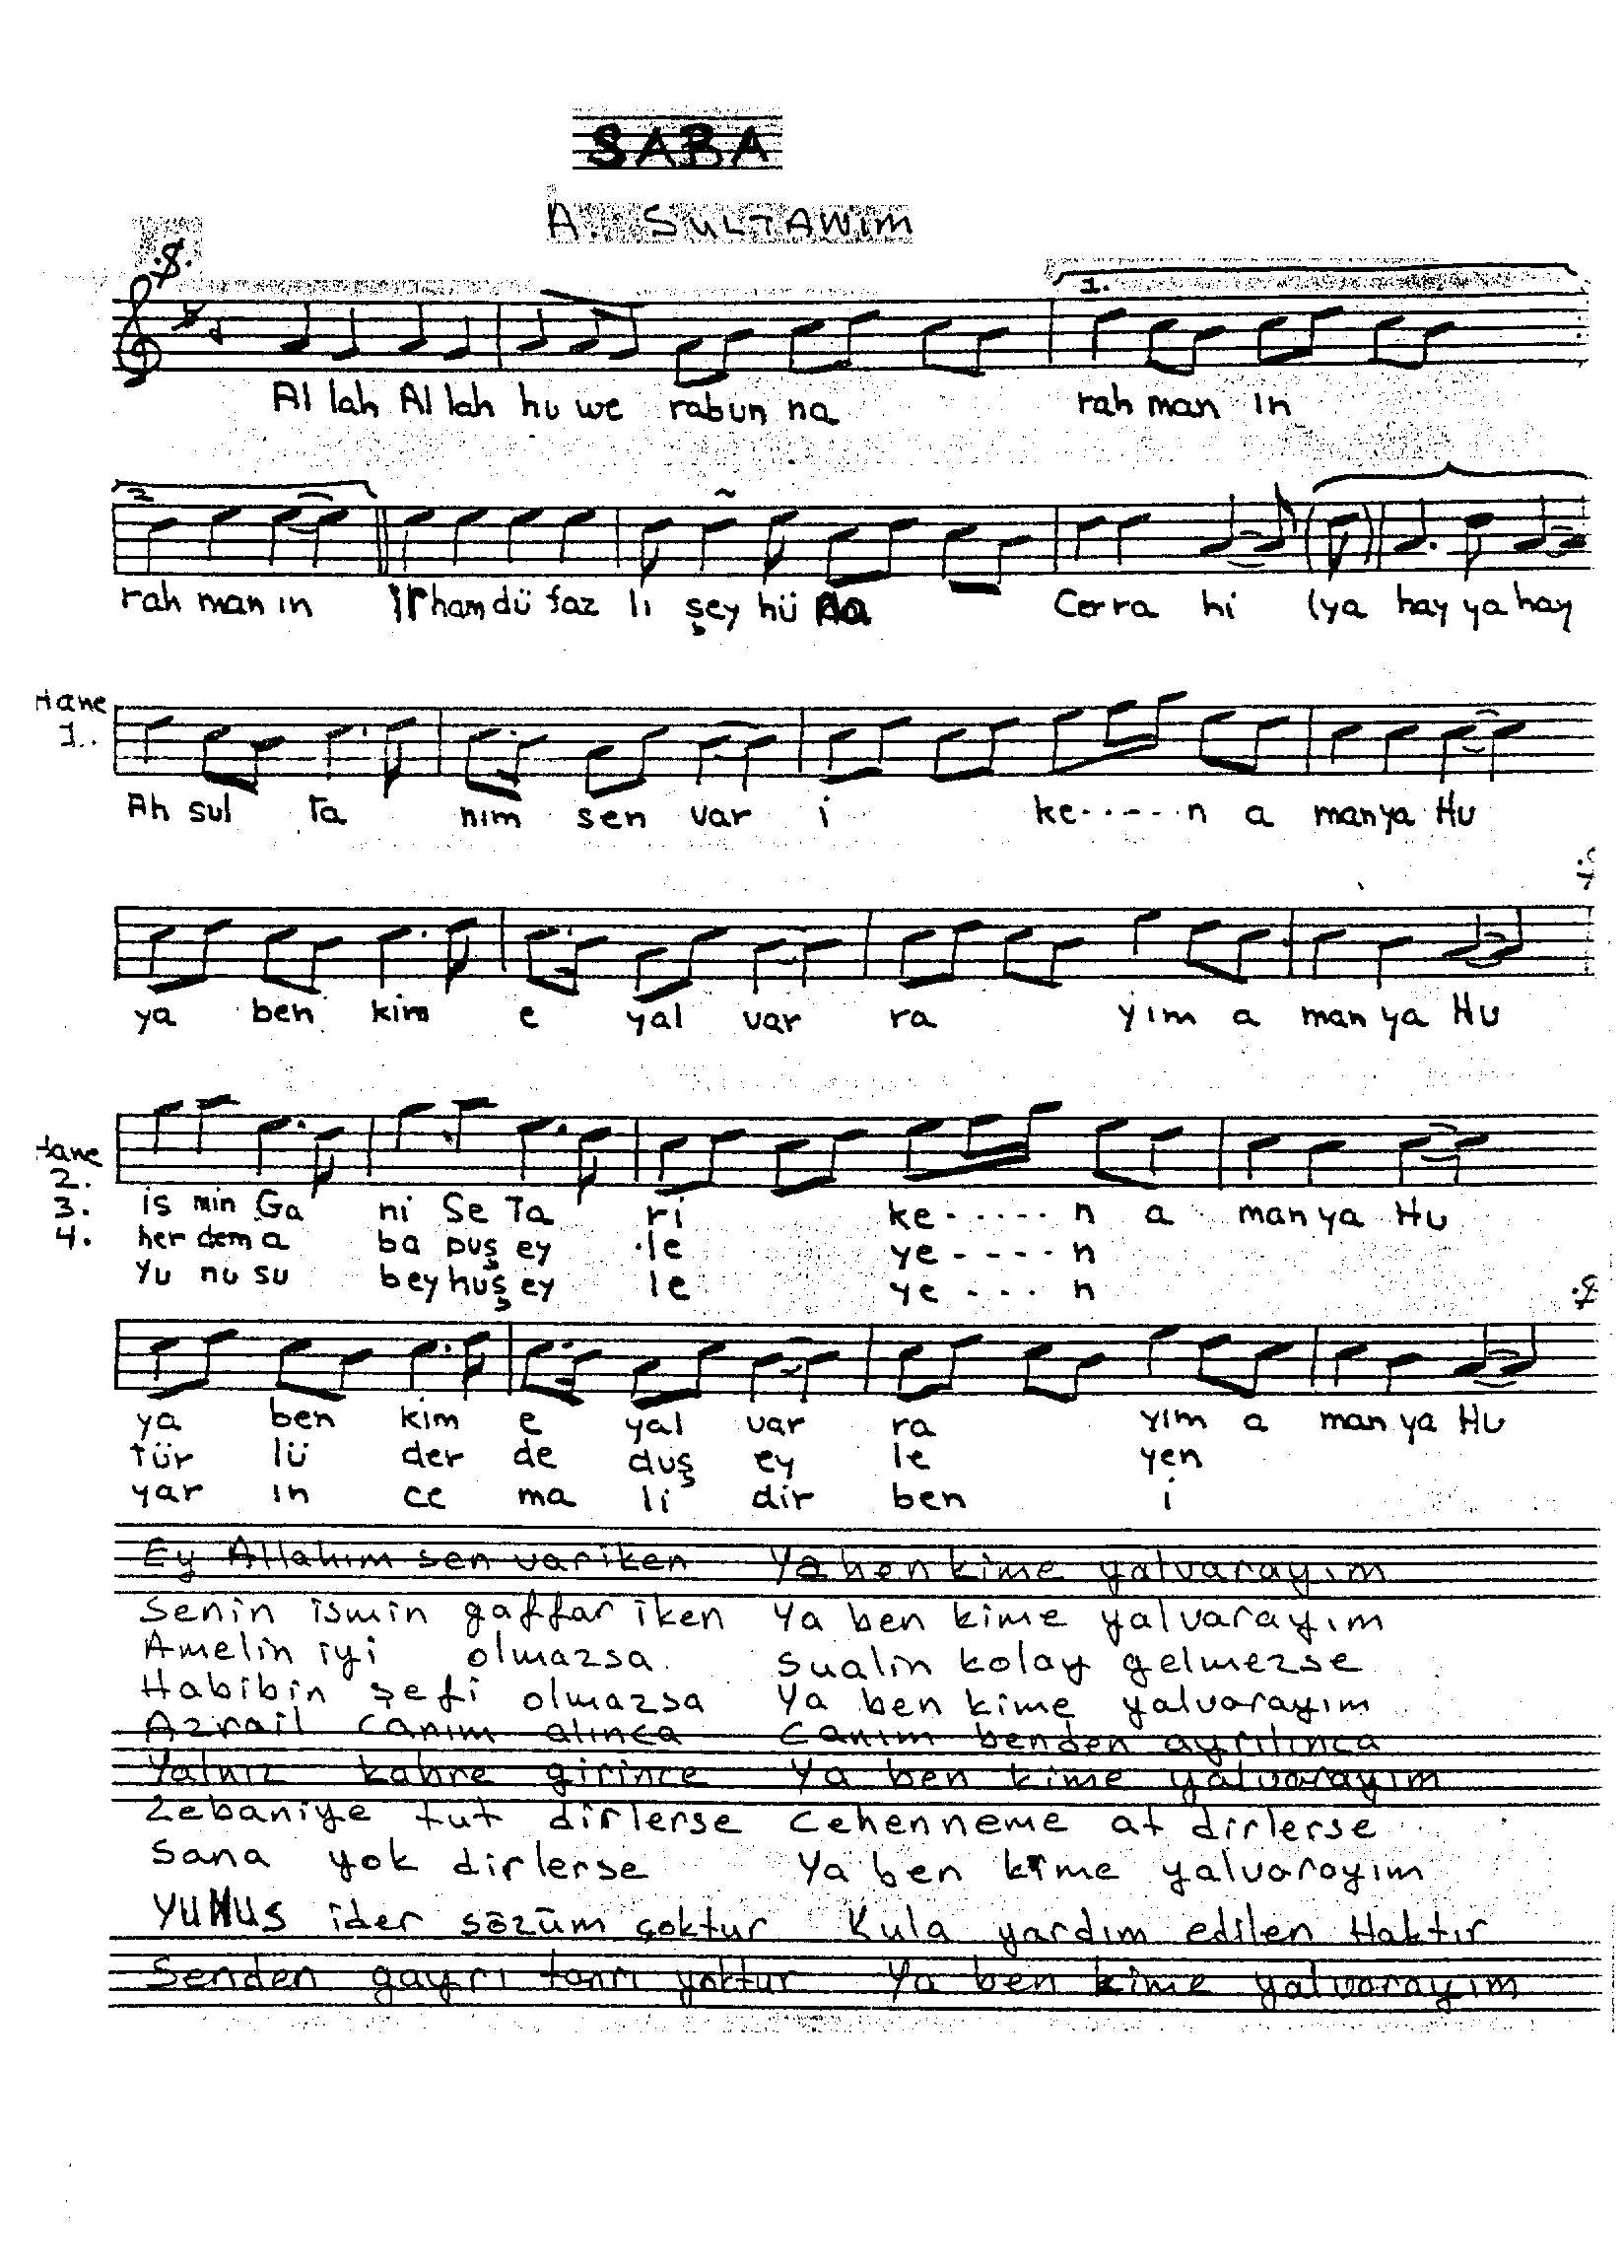 SABA
A. SULTAWIM
1.
Al lah Al lah hu we rabun na rah man in
2
rah man ın ır ham dü faz lı şey hü na Cer ra hi (ya hay ya hay
Hane
1.
Ah sul Ta nım sen var i ke------n a man ya Hu
ya ben kim e yal var ra yım a man ya Hu
Hane
2.
3.
4.
is min Ga ni Se Ta ri ke------n a man ya Hu
her dem a ba puş ey le ye----n
Yu nu su bey huş ey le ye---n
ya ben kim e yal var ra yım a man ya Hu
tür lü der de duş ey le yen
yar ın ce ma li dir ben i
Ey Allahım sen variken Ya ben kime yalvarayım
Senin ismin gaffar iken Ya ben kime yalvarayım
Amelin iyi olmazsa Sualin kolay gelmezse
Habibin şefi olmazsa Ya ben kime yalvarayım
Azrail canım alınca Canım benden ayrılınca
Yalnız kabre girince Ya ben kime yalvarayım
Zebaniye tut dirlerse Cehenneme at dirlerse
Sana yok dirlerse Ya ben kime yalvarayım
YUNUS ider sözüm çoktur Kula yardım edilen Haktır
Senden gayrı tanrı yoktur Ya ben kime yalvarayım